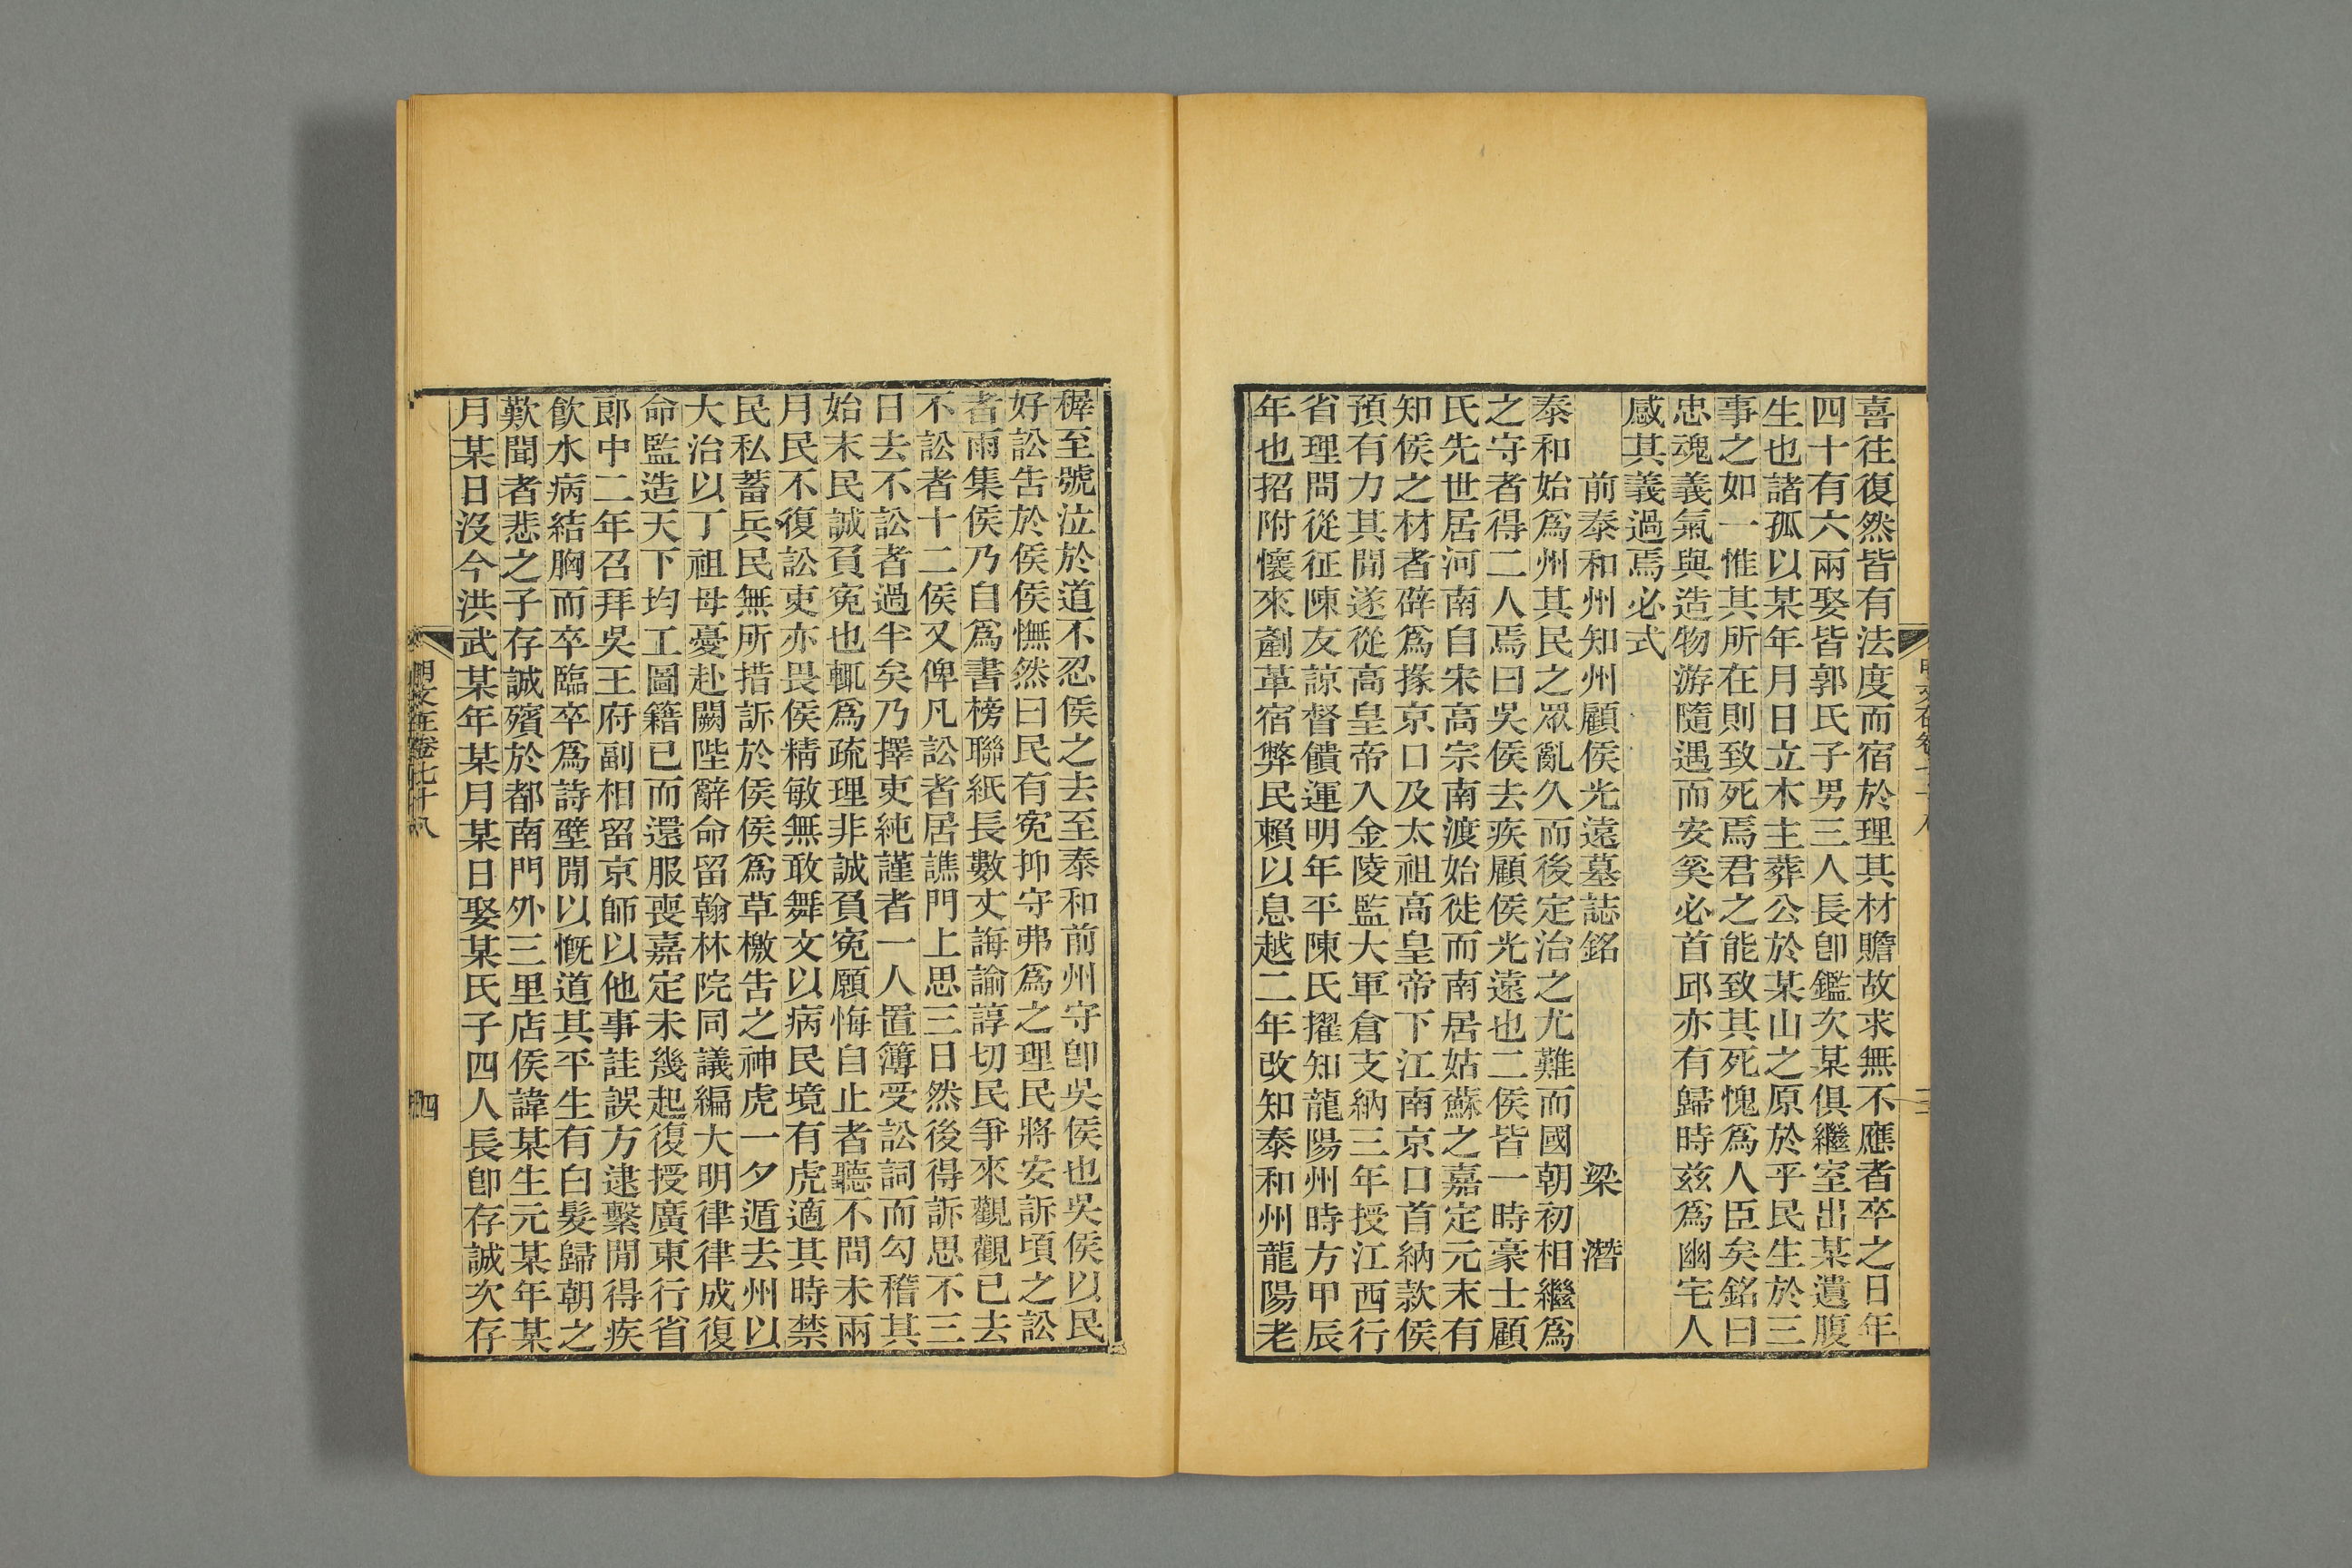 喜往復然皆有法度而宿於理其材贍故求無不應者卒之日年
四十有六兩娶皆郭氏子男三人長卽鑑次某俱繼室出某遺腹
生也諸孤以某年月日立木主葬公於某山之原於乎民生於三
事之如一惟其所在則致死焉君之能致其死愧爲人臣矣銘曰
忠魂義氣與造物游隨遇而安奚必首邱亦有歸時兹爲幽宅人
感其義過焉必式
前泰和州知州顧侯光遠墓誌銘 梁 潛
泰和始爲州其民之眾亂久而後定治之尤難而國朝初相繼爲
之守者得二人焉曰吳侯去疾顧侯光遠也二侯皆一時豪士顧
氏先世居河南自宋高宗南渡始徙而南居姑蘇之嘉定元末有
知侯之材者辟爲掾京口及太祖高皇帝下江南京口首納款侯
預有力其閒遂從高皇帝入金陵監大軍倉支納三年授江西行
省理問從征陳友諒督饋運明年平陳氏擢知龍陽州時方甲辰
年也招附懷來剷革宿弊民賴以息越二年改知泰和州龍陽老
穉至號泣於道不忍侯之去至泰和前州守卽吳侯也吳侯以民
好訟告於侯侯憮然曰民有寃抑守弗爲之理民將安訴頃之訟
者雨集侯乃自爲書榜聯紙長數丈誨諭諄切民爭來觀觀已去
不訟者十二侯又俾凡訟者居譙門上思三日然後得訴思不三
日去不訟者過半矣乃擇吏純謹者一人置簿受訟詞而勾稽其
始末民誠負寃也輒爲疏理非誠負寃願悔自止者聽不問未兩
月民不復訟吏亦畏侯精敏無敢舞文以病民境有虎適其時禁
民私蓄兵民無所措訴於侯侯爲草檄告之神虎一夕遁去州以
大治以丁祖母憂赴闕陛辭命留翰林院同議編大明律律成復
命監造天下均工圖籍已而還服喪嘉定未幾起復授廣東行省
郎中二年召拜吳王府副相留京師以他事詿誤方逮繫閒得疾
飲水病結胸而卒臨卒爲詩壁閒以慨道其平生有白髮歸朝之
歎聞者悲之子存誠殯於都南門外三里店侯諱某生元某年某
月某日沒今洪武某年某月某日娶某氏子四人長卽存誠次存
明文在卷七十八
四